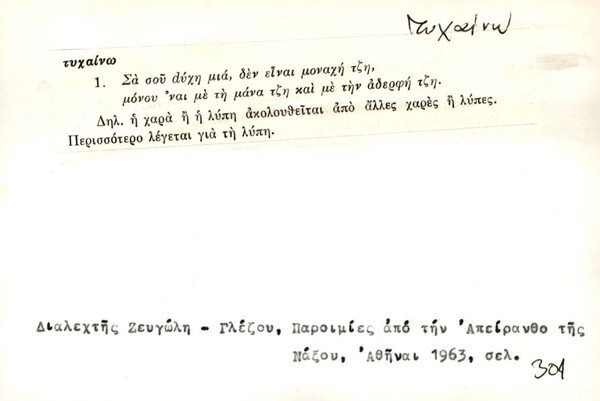 τυχαίνω
τυχαίνω
1. Σὰ σοῦ dύχη μιά, δὲν εἶναι μοναχή τζη,
μόνου 'ναι μὲ τὴ μάνα τζη καὶ μὲ τὴν ἀδερφή τζη.
Δηλ. ἡ χαρὰ ἢ ἡ λύπη ἀκολουθεῖται ἀπὸ ἄλλες χαρὲς ἢ λύπες.
Περισσότερο λέγεται γιὰ τὴ λύπη.
Διαλεχτῆς Ζευγώλη - Γλέζου, Παροιμίες ἀπό τήν Ἀπείρανθο τῆς
Νάξου, Ἀθῆναι 1963, σελ. 301